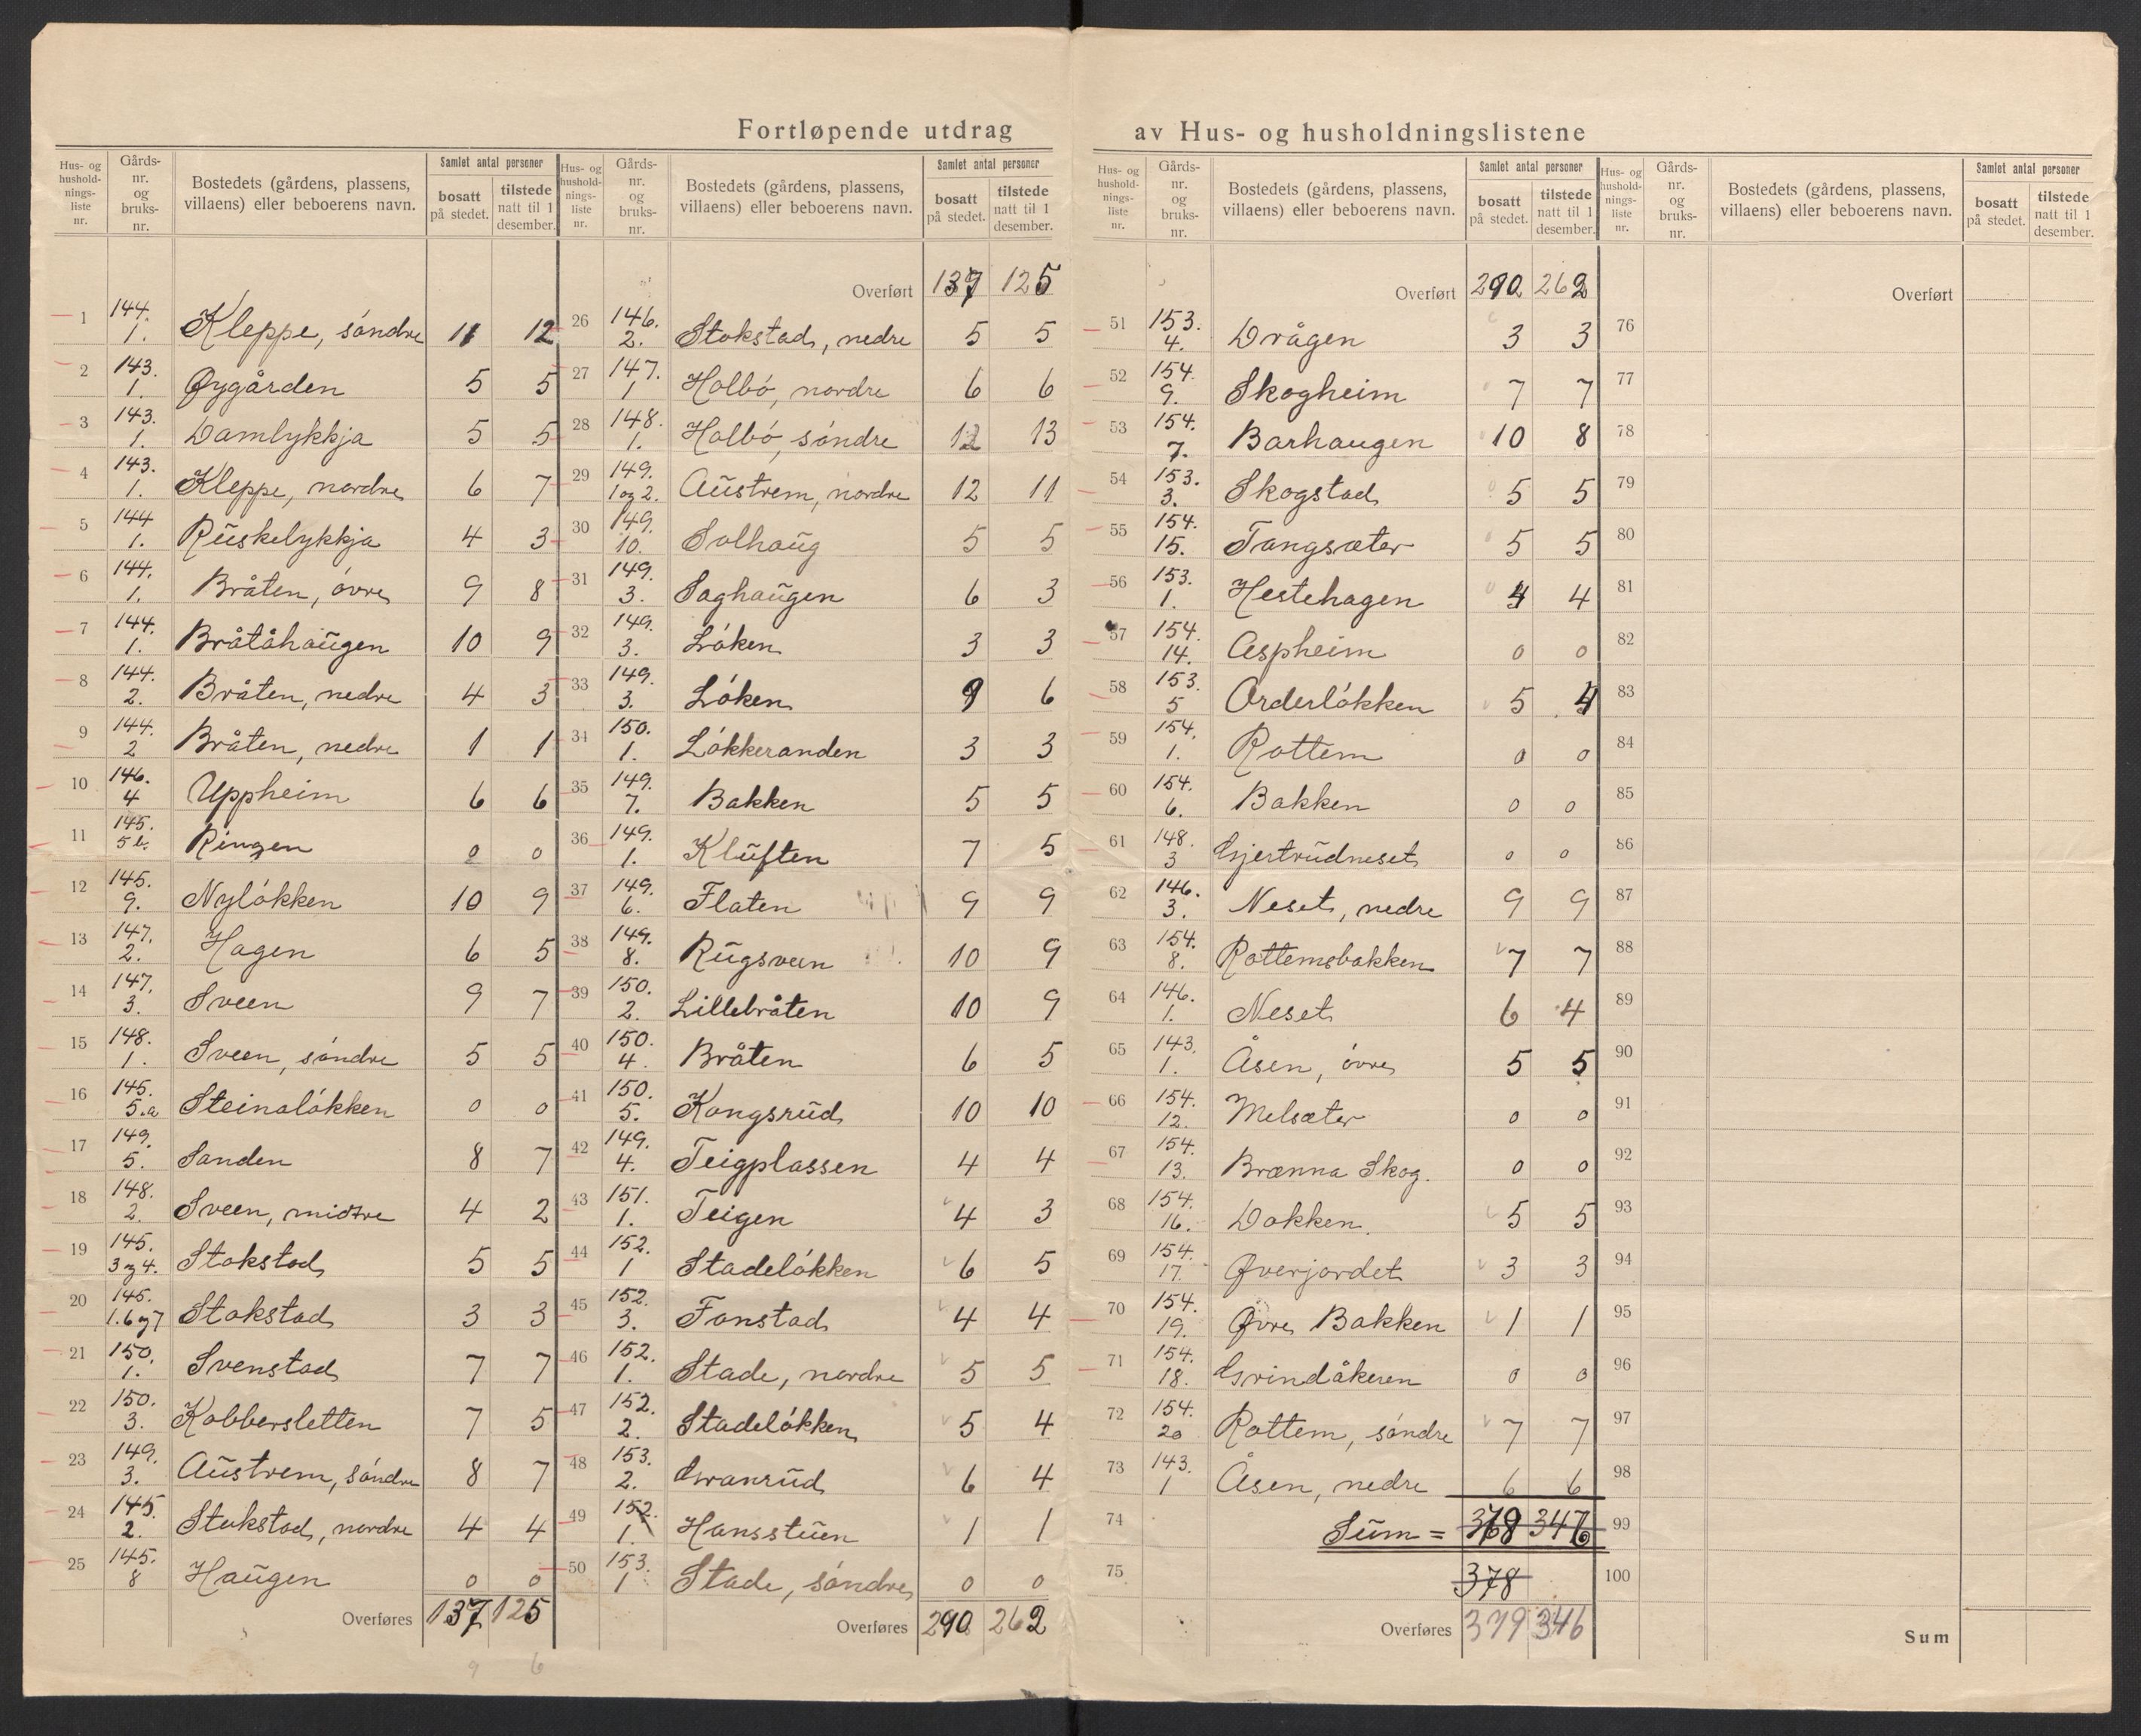 Fortløpende utdrag av Hus- og husholdningslistene
Hus- og hushold-nings-liste nr. | Gårds-nr. og bruks-nr. | Bostedets (gårdens, plassens, villaens) eller beboerens navn. | Samlet antal personer | bosatt på stedet. | tilstede natt til 1 desember.
1 144. 1. Kleppe, söndre 11 12
2 143. 1. Øygården 5 5
3 143. 1. Damlykkja 5 5
4 143. 1. Kleppe, nordre 6 7
5 144 1. Ruskelykkja 4 3
6 144. 1. Bråten, övre 9 8
7 144. 1. Bråtåhaugen 10 9
8 144. 2. Bråten, nedre 4 3
9 144. 2 Bråten, nedre 1 1
10 146. 4 Uppheim 6 6
11 145. 5 b. Ringen 0 0
12 145. 9. Nylökken 10 9
13 147. 2. Hagen 6 5
14 147. 3. Sveen 9 7
15 148. 1. Sveen, söndre 5 5
16 145. 5.a Steinalökken 0 0
17 149. 5. Sanden 8 7
18 148. 2. Sveen, midtre 4 2
19 145. 3 og 4. Stokstad 5 5
20 145. 1. 6 og 7 Stokstad 3 3
21 150. 1. Svenstad 7 7
22 150. 3. Kobbersletten 7 5
23 149. 3. Austrem, söndre 8 7
24 145. 2. Stokstad, nordre 4 4
25 145. 8 Haugen 0 0
Overføres 137 125
9 6
Hus- og hushold-nings-liste nr. | Gårds-nr. og bruks-nr. | Bostedets (gårdens, plassens, villaens) eller beboerens navn. | Samlet antal personer | bosatt på stedet. | tilstede natt til 1 desember.
Overført 137 125
26 146. 2. Stokstad, nedre 5 5
27 147. 1 Holbö, nordre 6 6
28 148. 1. Holbö, söndre 12 13
29 149. 1 og 2. Austrem, nordre 12 11
30 149. 10. Solhaug 5 5
31 149. 3. Saghaugen 6 3
32 149. 3. Löken 3 3
33 149. 3. Löken 9 6
34 150. 1. Lökkeranden 3 3
35 149. 7. Bakken 5 5
36 149. 1. Kluften 7 5
37 149. 6. Flaten 9 9
38 149. 8. Rugsveen 10 9
39 150. 2. Lillebråten 10 9
40 150. 4. Bråten 6 5
41 150. 5. Kongsrud 10 10
42 149. 4. Teigplassen 4 4
43 151. 1. Teigen 4 3
44 152. 1 Stadelökken 6 5
45 152. 3. Fonstad 4 4
46 152. 1. Stade, nordre 5 5
47 152. 2. Stadelökken 5 4
48 153. 2. Svansrud 6 4
49 152. 1. Hansstuen 1 1
50 153. 1 Stade, söndre 0 0
Overføres 290 262
Hus- og hushold-nings-liste nr. | Gårds-nr. og bruks-nr. | Bostedets (gårdens, plassens, villaens) eller beboerens navn. | Samlet antal personer | bosatt på stedet. | tilstede natt til 1 desember.
Overført 290 262
51 153. 4. Drågen 3 3
52 154. 9. Skogheim 7 7
53 154. 7. Barhaugen 10 8
54 153. 3. Skogstad 5 5
55 154. 15. Tangsæter 5 5
56 153. 1. Hestehagen 4 4
57 154. 14. Aspheim 0 0
58 153. 5 Orderlökken 5 4
59 154. 1. Rottem 0 0
60 154. 6. Bakken 0 0
61 148. 3 Gjertrudneset 0 0
62 146. 3. Neset, nedre 9 9
63 154. 8. Rottemsbakken 7 7
64 146. 1. Neset 6 4
65 143. 1. Åsen, övre 5 5
66 154. 12. Melsæter 0 0
67 154. 13. Brænna Skog. 0 0
68 154. 16. Dokken. 5 5
69 154. 17. Øverjordet 3 3
70 154. 19. Øvre Bakken 1 1
71 154. 18. Grindåkeren 0 0
72 154. 20 Rottem, söndre 7 7
73 143. 1 Åsen, nedre 6 6
74 Sum = 378 346
75 378
Overføres 379 346
Hus- og hushold-nings-liste nr. | Gårds-nr. og bruks-nr. | Bostedets (gårdens, plassens, villaens) eller beboerens navn. | Samlet antal personer | bosatt på stedet. | tilstede natt til 1 desember.
Overført
76
77
78
79
80
81
82
83
84
85
86
87
88
89
90
91
92
93
94
95
96
97
98
99
100
Sum